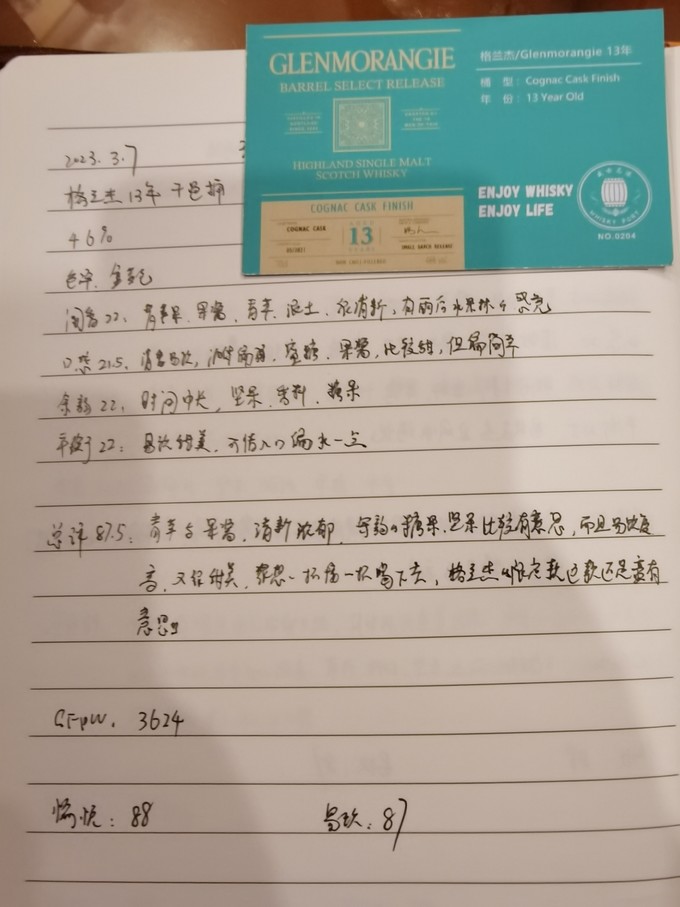 GLENMORANGIE
BARREL SELECT RELEASE
HIGHLAND SINGLE MALT
SCOTCH WHISKY
COGNAC CASK FINISH
COGNAC CASK
13
YEARS
SMALL BATCH RELEASE
格兰杰/Glenmorangie 13年
桶 型: Cognac Cask Finish
年 份: 13 Year Old
ENJOY WHISKY
ENJOY LIFE
WHISKY PORT
NO.0204
2023.3.7
格兰杰13年 干邑桶
46%
色泽、金黄色
闻香22: 青苹果、果酱、青草、泥土、很清新,有雨后水果林
口感21.5、清香易饮,酒体偏薄、蜜糖、果酱,比较甜,但偏简单
余韵22: 时间中长,坚果、香料、糖果
平衡22: 易饮甜美,可惜入口偏水一点
总评87.5: 青草与果酱,清新浓郁,余韵的糖果、坚果比较有意思,而且易饮度
高,又保甜美,一杯接一杯喝下去,格兰杰的限定款这款还是蛮有
意思
3624
愉悦: 88
易饮: 87